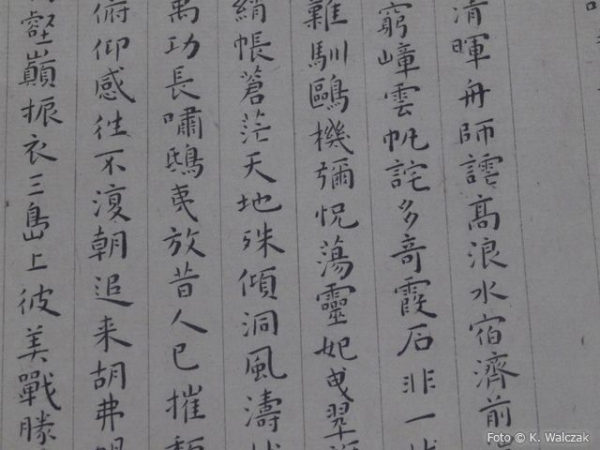 清暉舟師譃高浪水宿濟前
窮嶂雲帆詫多奇霞石非一
難馴鷗機彌怳蕩靈妃曳翠
綃帳蒼茫天地殊傾洞風濤
禹功長嘯鴟夷放昔人已摧
俯仰感往不復朝追来胡弗
壑巔振衣三島上彼美戰勝
Foto © K. Walczak